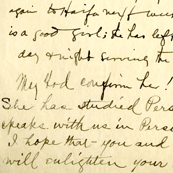 again to Haifa next
is a good girl; He has left
day & night serving the
May God confirm he!
She has studied Pers
speaks with us in Pers
I hope that - you and
will enlighten your